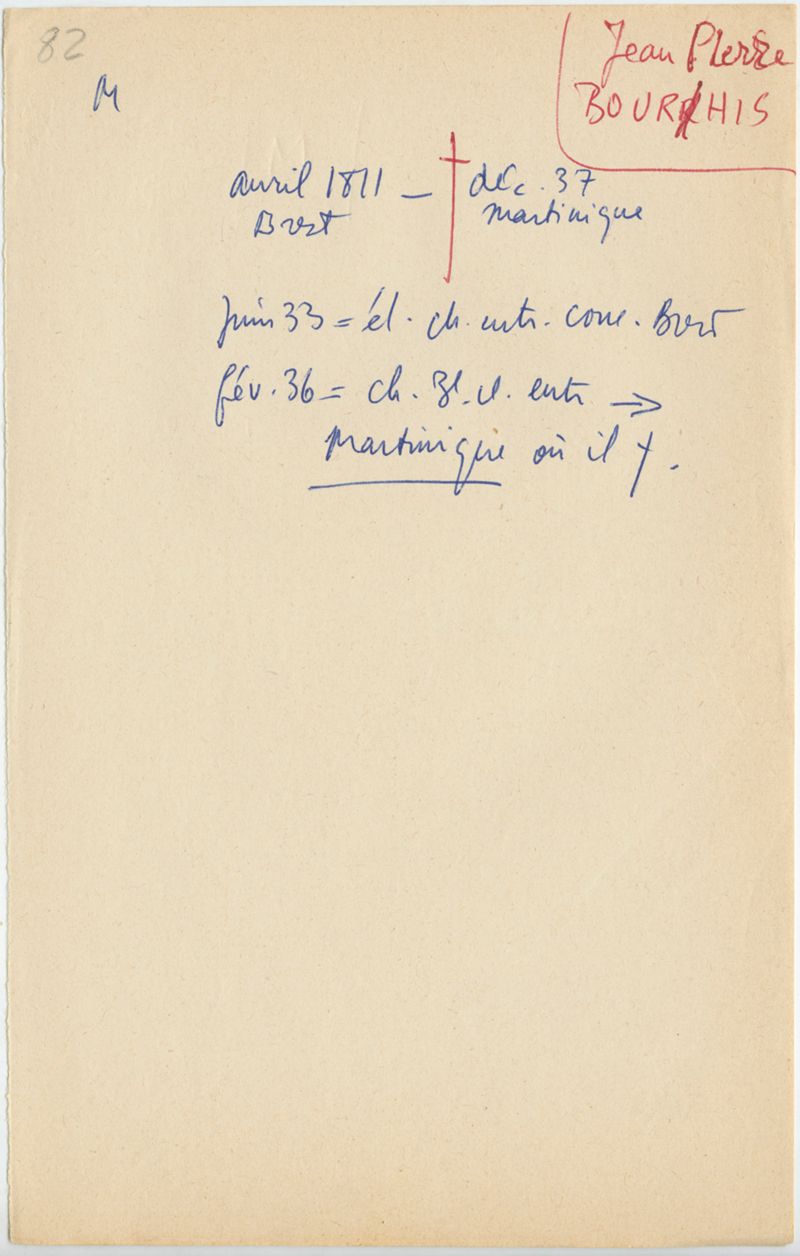 82
M
Jean Pierre
BOURHIS
avril 1811 — † déc. 37
Brest martinique
Juin 33 = él. ch. entr. conc. Brest
fév. 36 = ch. 3e cl. entr →
Martinique où il †.